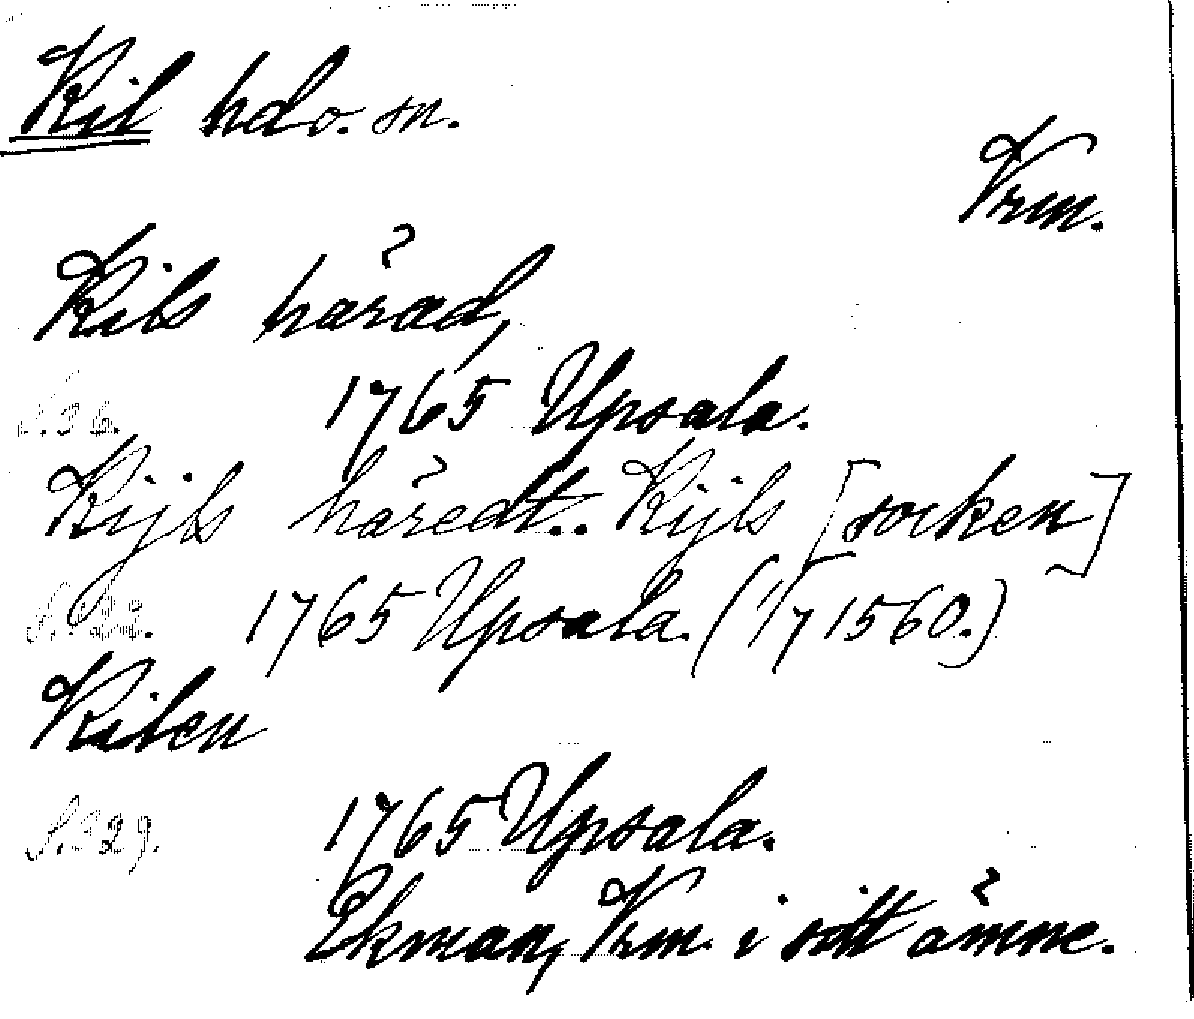 Kil hd o. sn.
Vrm.
Kils härad,
1765 Upsala.
Kijls häredt.. Kijls [socken]
1765 Upsala. (1/7 1560.)
Kilen
S. 329. 1765 Upsala.
Ekman, Vrm. i sitt ämne.